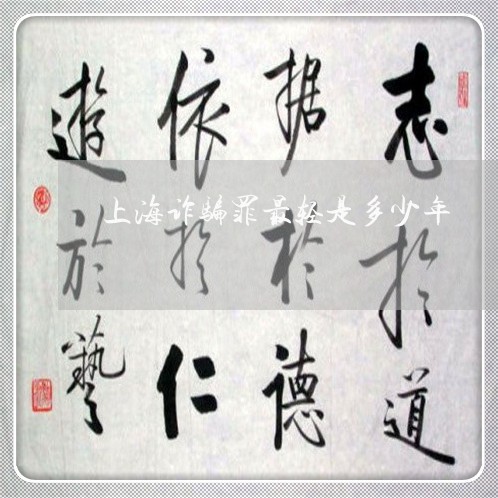 志於道
据於德
依於仁
遊於藝
上海诈骗罪最轻是多少年